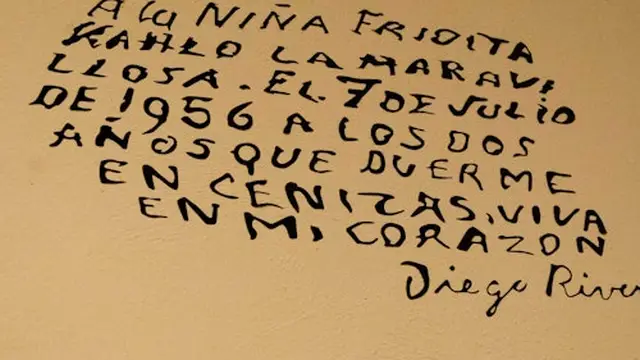 A la NIÑA FRIDITA
KAHLO LA MARAVI
LLOSA. EL 7 DE JULIO
DE 1956 A LOS DOS
AÑOS QUE DUERME
EN CENIZAS, VIVA
EN MI CORAZON
Diego River